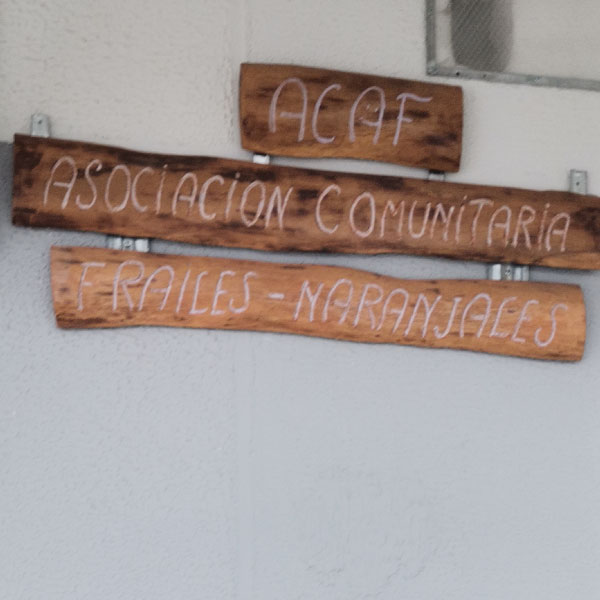 ACAF
ASOCIACION COMUNITARIA
FRAILES - NARANJALES